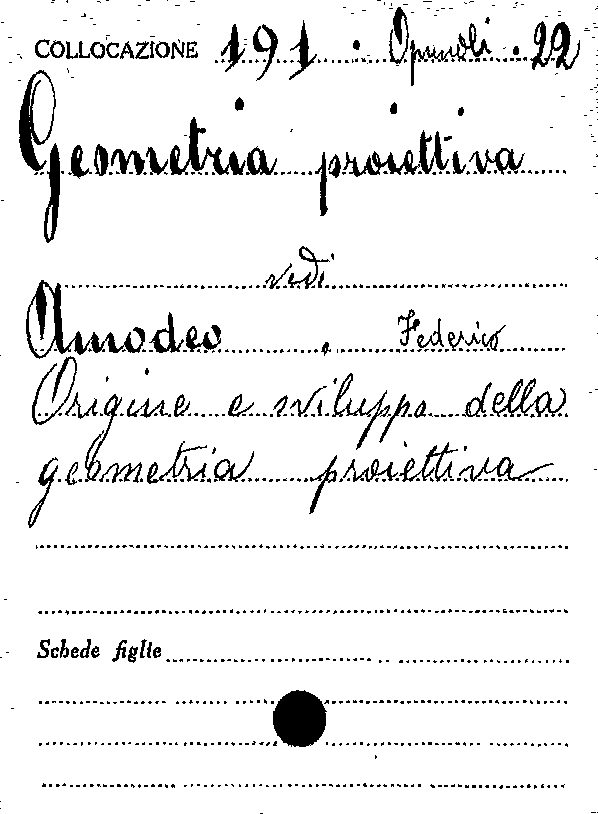 COLLOCAZIONE 191 . Opuscoli . 22
Geometria proiettiva
vedi
Amodeo , Federico
Origine e sviluppo della
geometria proiettiva
Schede figlie